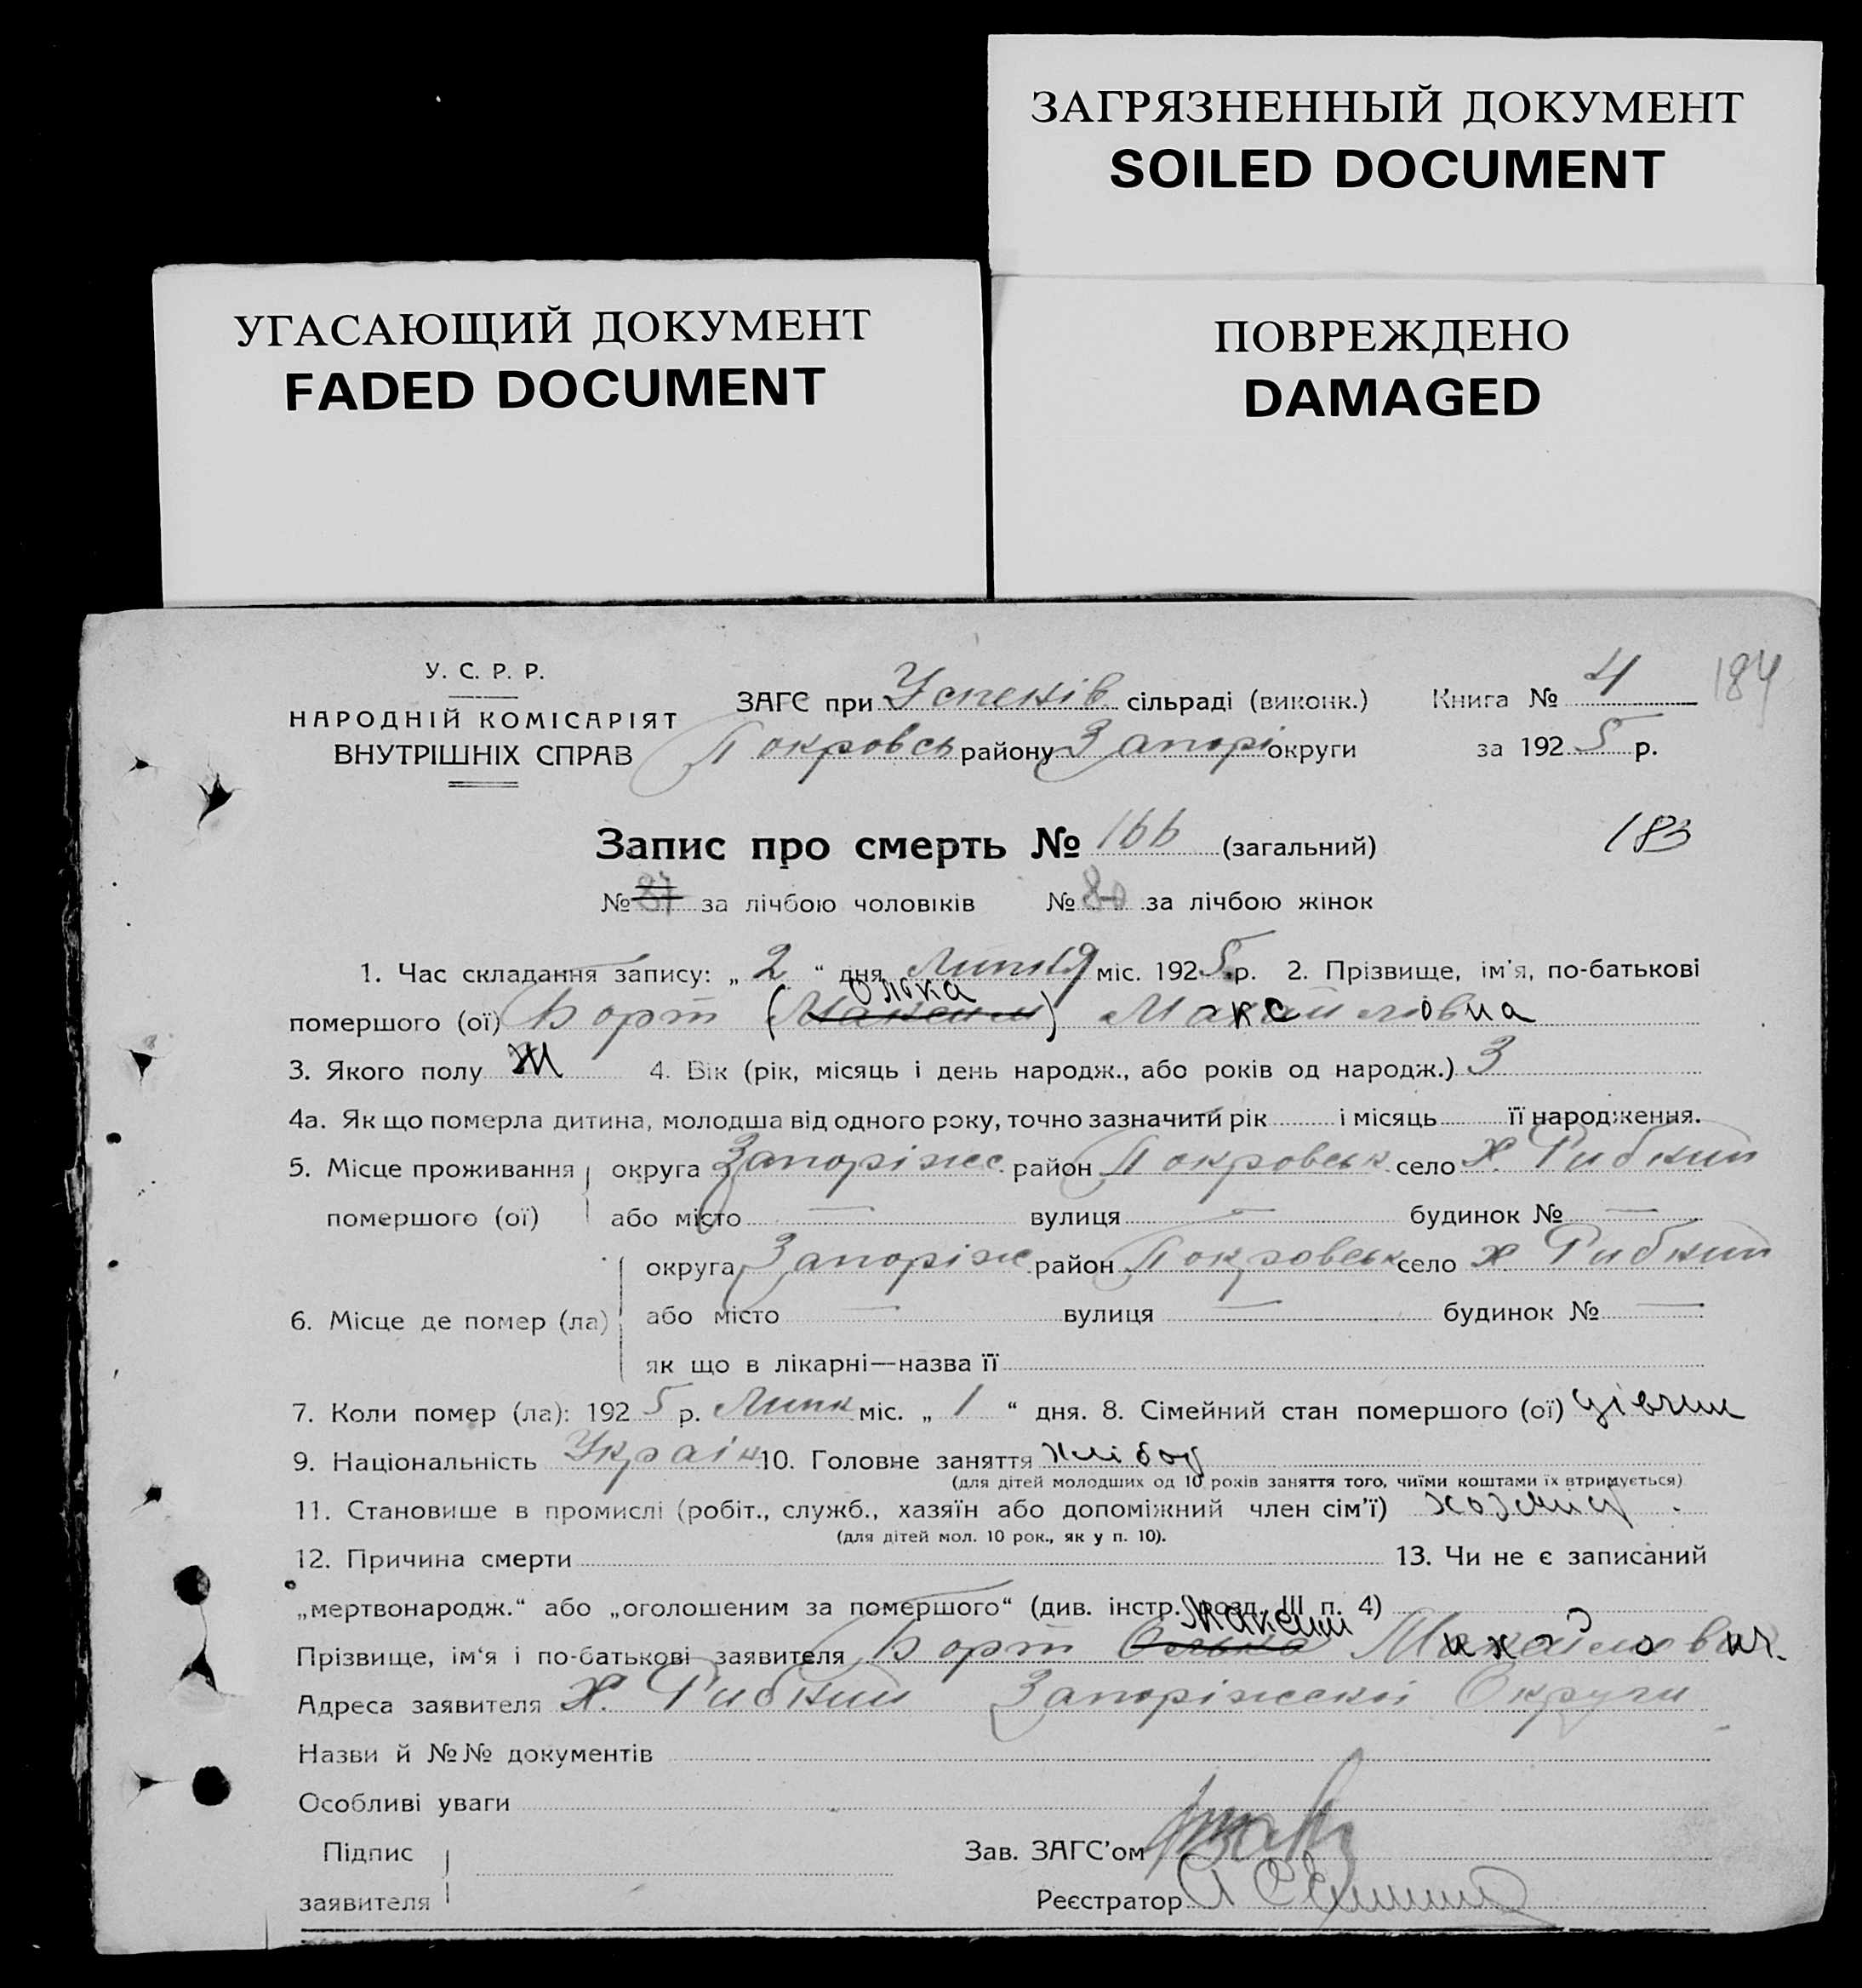 ЗАГРЯЗНЕННЫЙ ДОКУМЕНТ
SOILED DOCUMENT
УГАСАЮЩИЙ ДОКУМЕНТ
FADED DOCUMENT
ПОВРЕЖДЕНО
DAMAGED
У. С. Р. Р.
НАРОДНІЙ КОМІСАРІЯТ
ВНУТРІШНІХ СПРАВ
ЗАГС при Успенів сільраді (виконк.) Книга № 4 184
Покровсь району Запорі округи за 1925 р.
Запис про смерть № 166 (загальний) 183
№ 87 за лічбою чоловіків № 80 за лічбою жінок
1. Час складання запису: „ 2 “ дня Липня міс. 1925 р. 2. Прізвище, ім'я, по-батькові
Олька
помершого (ої) Борт (Максим) Максимовна
3. Якого полу Ж 4. Вік (рік, місяць і день народж., або років од народж.) 3
4а. Як що померла дитина, молодша від одного року, точно зазначити рік і місяць її народження.
5. Місце проживання помершого (ої) округа Запоріжс. район Покровськ село Х. Рибкин
або місто — вулиця — будинок № —
6. Місце де помер (ла) округа Запоріж район Покровськ село Х. Рибкин
або місто — вулиця — будинок № —
як що в лікарні—назва її
7. Коли помер (ла): 1925 р. Липн міс. „ 1 “ дня. 8. Сімейний стан помершого (ої) дівчин
9. Національність Україн 10. Головне заняття хлібор
(для дітей молодших од 10 років заняття того, чиїми коштами їх втримується)
11. Становище в промислі (робіт., служб., хазяїн або допоміжний член сім'ї)
(для дітей мол. 10 рок., як у п. 10).
12. Причина смерти 13. Чи не є записаний
„мертвонародж.“ або „оголошеним за помершого“ (див. інстр. розд. III п. 4)
Максим
Прізвище, ім'я і по-батькові заявителя Борт Олька Михайлович.
Адреса заявителя Х. Рибкин Запоріжській Округи
Назви й №№ документів
Особливі уваги
Підпис заявителя
Зав. ЗАГС'ом
Реєстратор